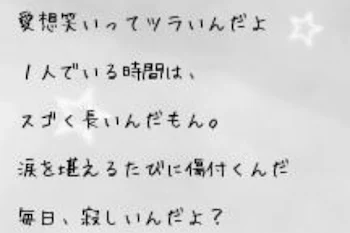 愛想笑いってツラいんだよ
1人でいる時間は、
スゴく長いんだもん。
涙を堪えるたびに傷付くんだ
毎日、寂しいんだよ?